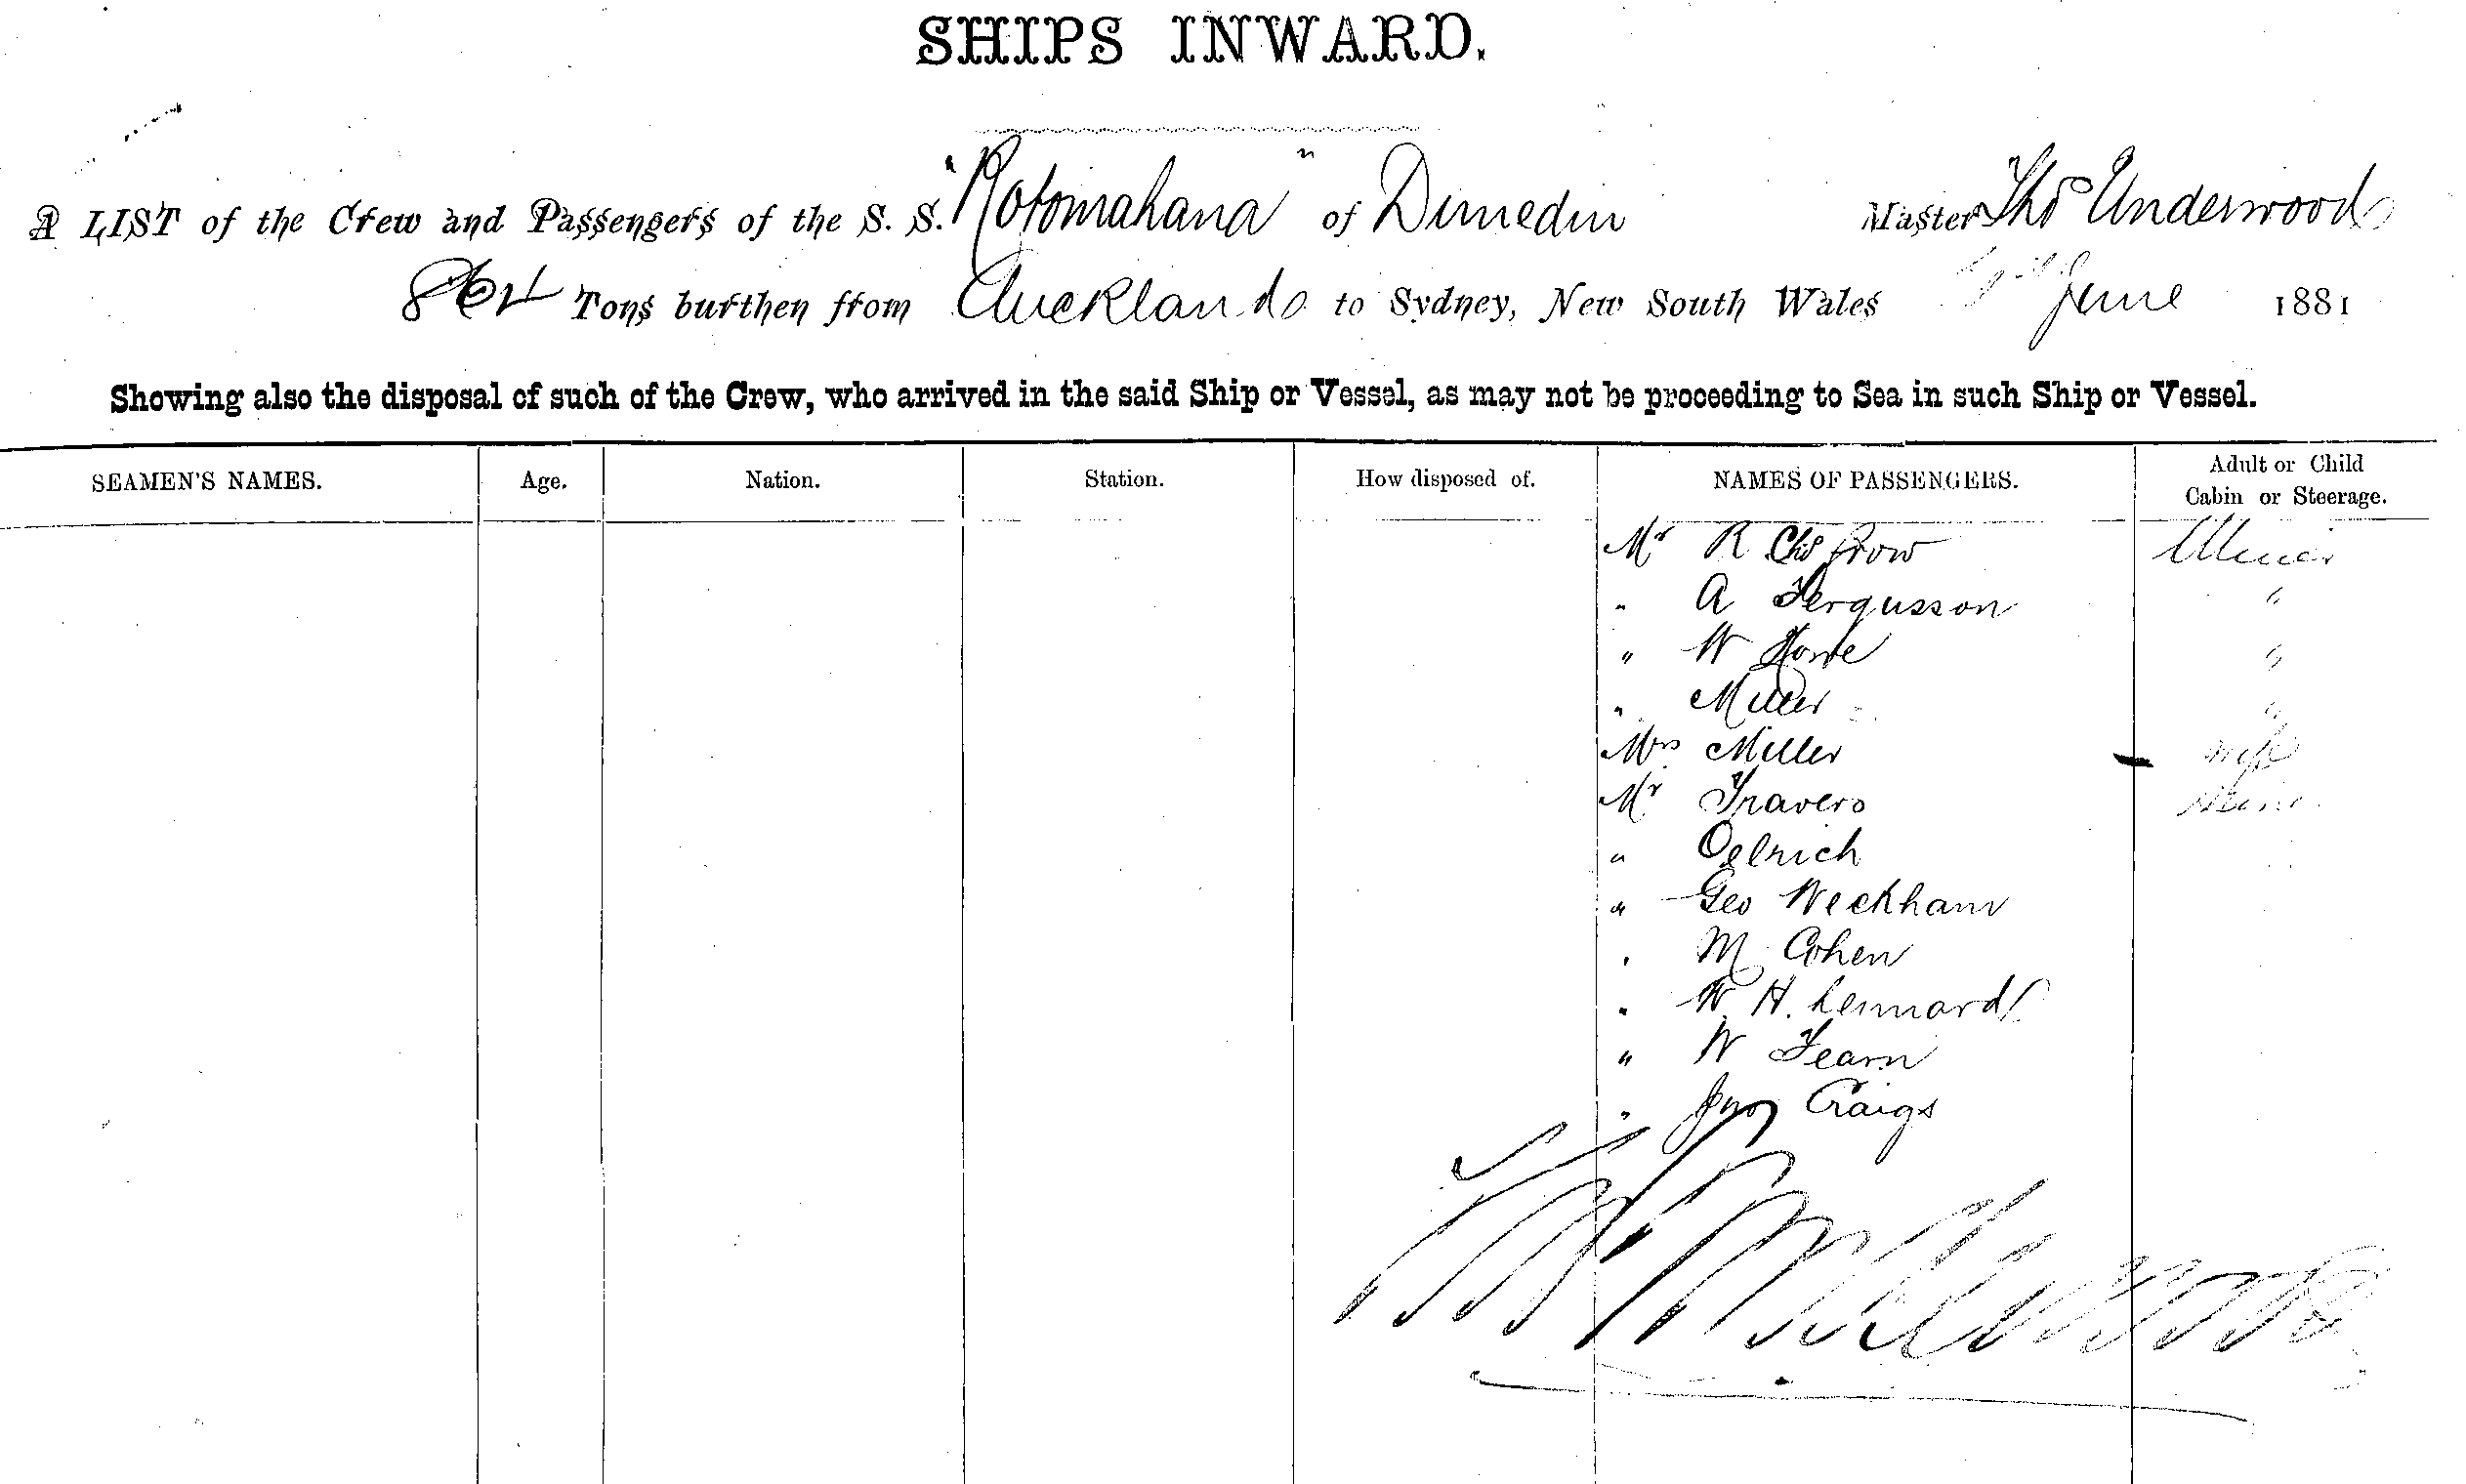 SHIPS INWARD.
A LIST of the Crew and Passengers of the S. S. "Rotomahana" of Dunedin Master Thos Underwood
864 Tons burthen from Auckland to Sydney, New South Wales June 1881
Showing also the disposal of such of the Crew, who arrived in the said Ship or Vessel, as may not be proceeding to Sea in such Ship or Vessel.
SEAMEN'S NAMES. Age. Nation. Station. How disposed of. NAMES OF PASSENGERS. Adult or Child Cabin or Steerage.
Mr R Chs
" A Fergusson "
" W "
" Miller "
Mrs Miller
Mr Travers
" Oelrich
" Geo Weckham
" M Cohen
" W. H. Lennard
" W Fearn
" Jno Craigs